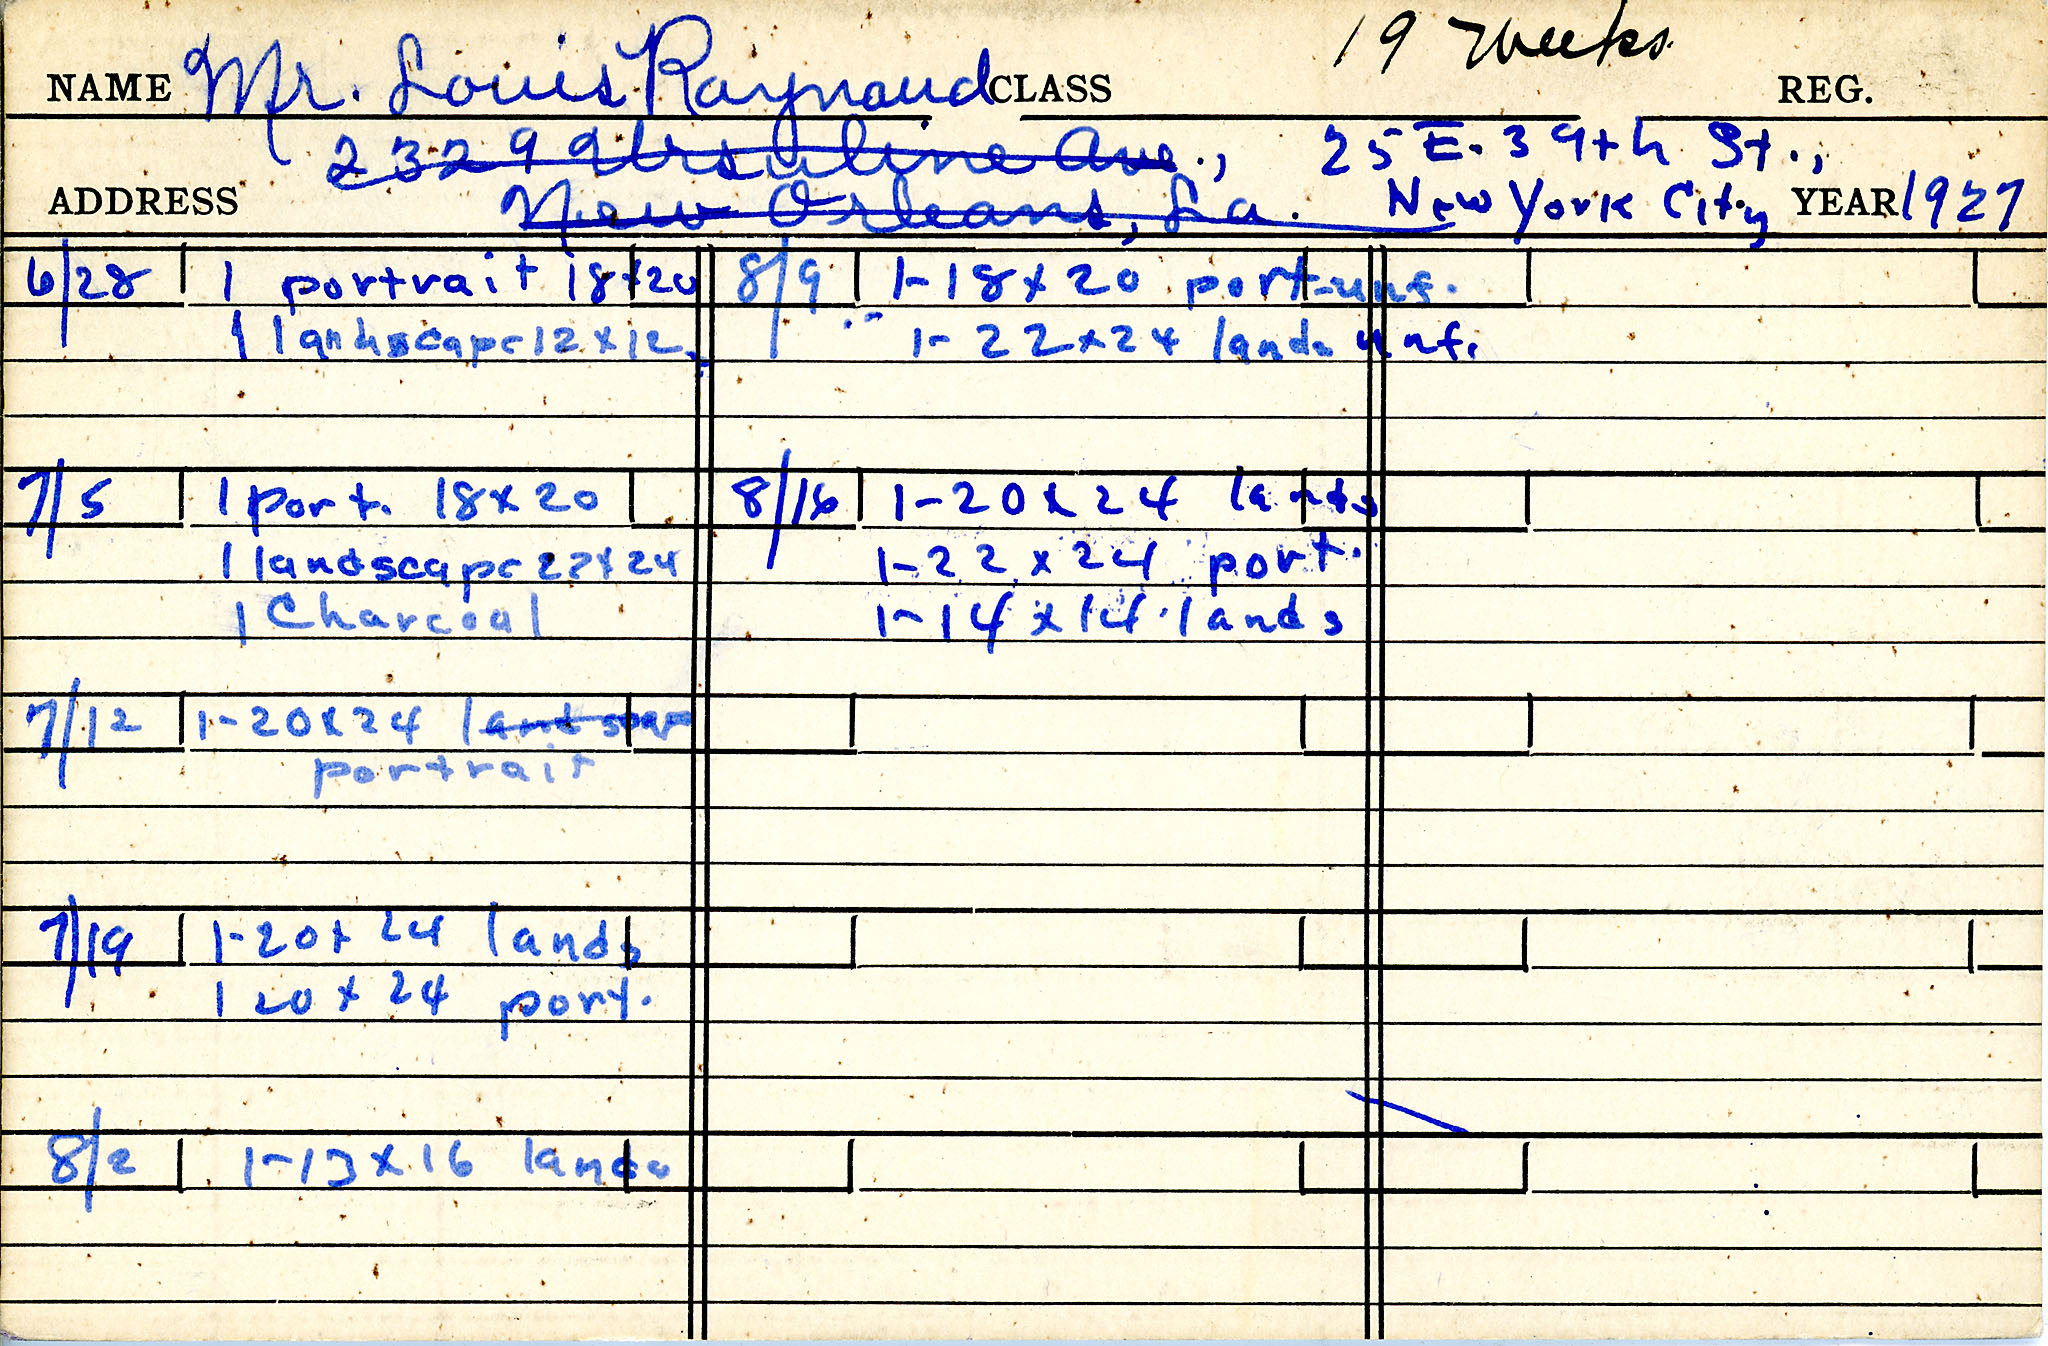 19 Weeks.
NAME Mr. Louis Raynaud CLASS REG.
2329 Ursuline Ave., 25 E. 39th St.,
ADDRESS New Orleans, La. New York City YEAR 1927
6/28 1 portrait 18x20
1 landscape 12x12.
7/5 1 port. 18x20
1 landscape 22x24
1 Charcoal
7/12 1-20x24 landscap
portrait
7/19 1-20x24 lands
1 20x24 port.
8/2 1-13x16 lands
8/9 1-18x20 port-unf.
1-22x24 lands unf.
8/16 1-20x24 lands
1-22x24 port.
1-14x14 lands